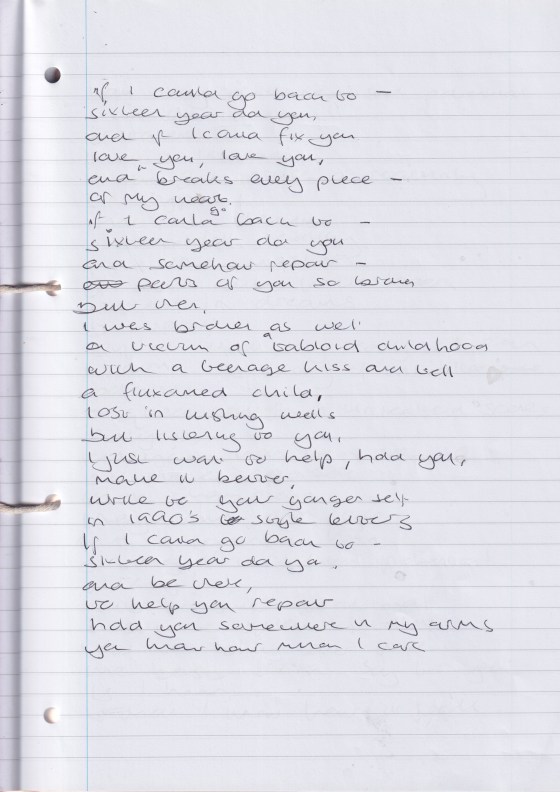 if I could go back to –
sixteen year old you,
and if I could fix you
love you, love you,
and breaks every piece –
of my heart.
if I could go back to –
sixteen year old you
and somehow repair –
parts of you so broken
but then,
I was broken as well
a victim of a tabloid childhood
with a teenage kiss and tell
a child,
lost in wishing wells
but listening to you,
I just want to help, hold you,
make it better,
write to your younger self
in 1990's style letters
If I could go back to –
sixteen year old you.
and be there,
to help you repair
hold you somewhere in my arms
you know how much I care